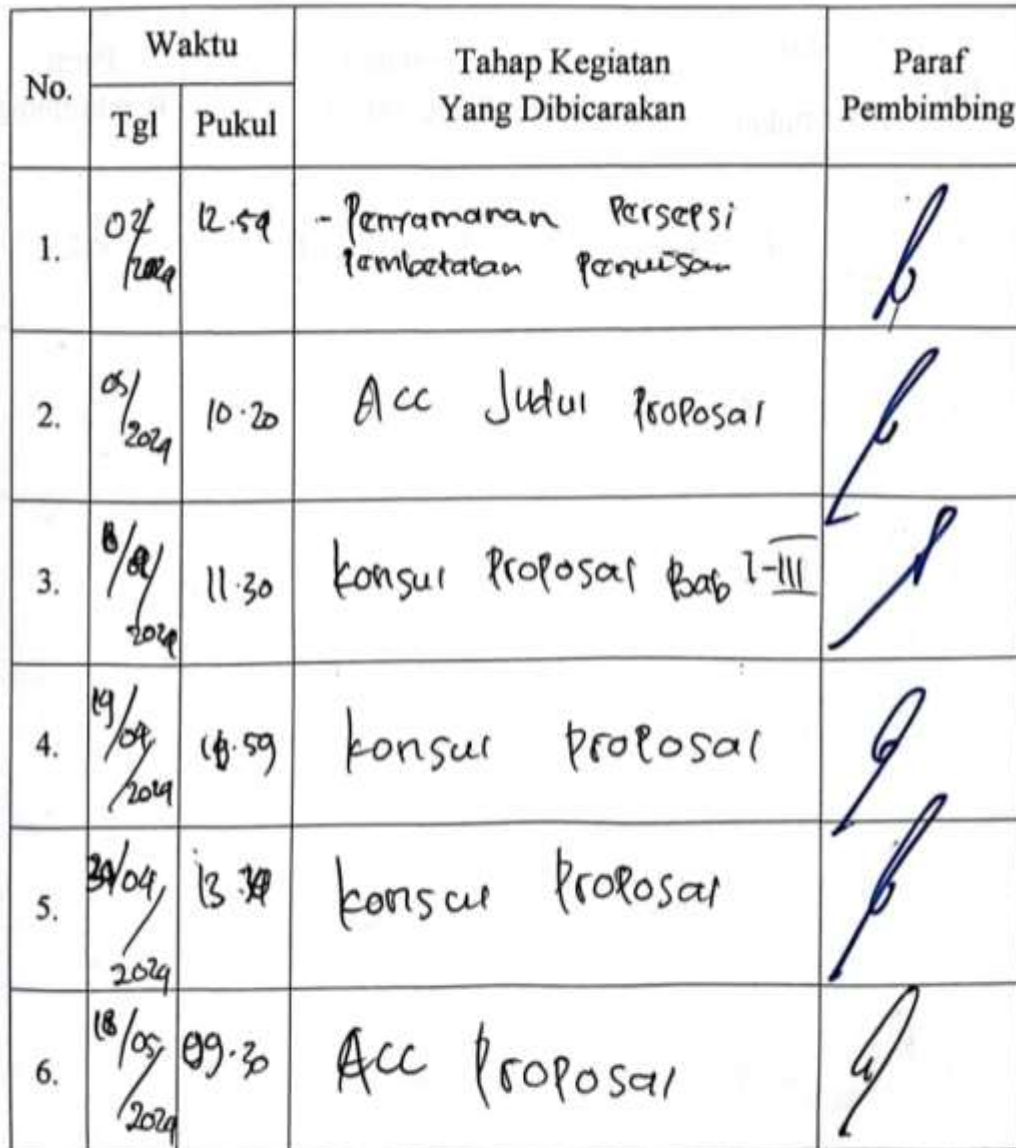 No.
Waktu
Tgl
Pukul
Tahap Kegiatan
Yang Dibicarakan
Paraf
Pembimbing
1.
02/2024
12.59
- Penyamanan Persepsi
Pembatatan Penulisan
2.
05/2024
10.20
Acc Judul Proposal
3.
2024
11.30
Konsul Proposal Bab I-III
4.
19/04/2024
59
Konsul Proposal
5.
/04/2024
13.
Konsul Proposal
6.
18/05/2024
09.30
Acc Proposal